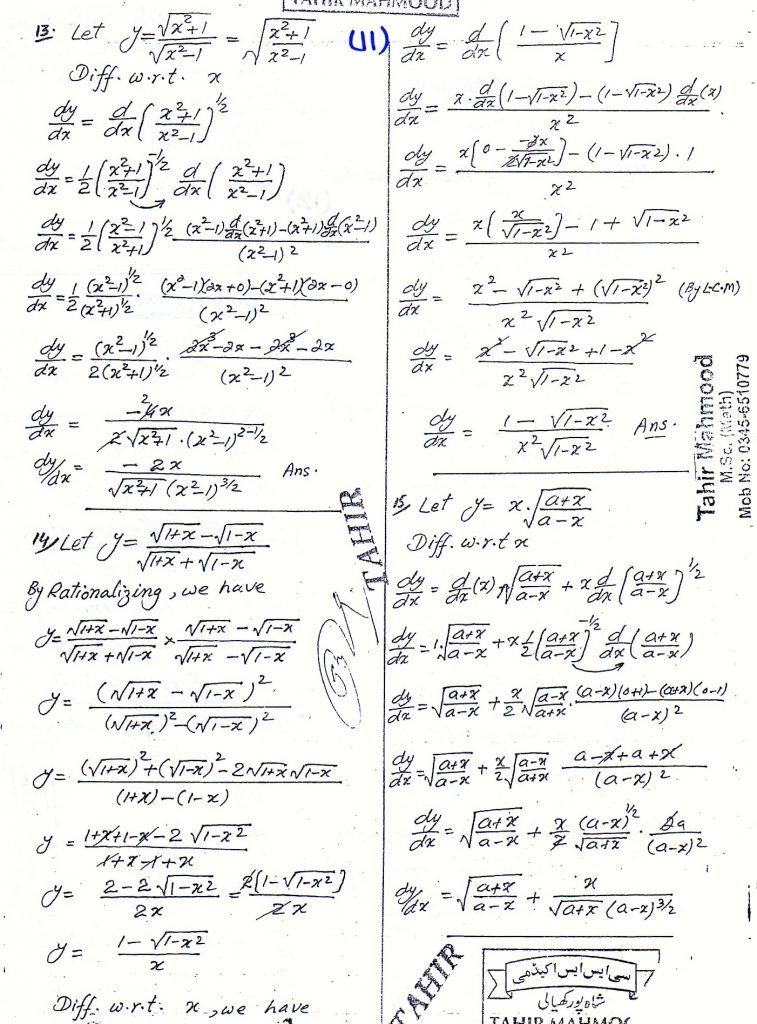 TAHIR MAHMOOD
(11)
13. Let y = √(x²+1)/√(x²-1) = √((x²+1)/(x²-1))
Diff. w.r.t. x
dy/dx = d/dx ((x²+1)/(x²-1))^1/2
dy/dx = 1/2 ((x²+1)/(x²-1))^-1/2 d/dx ((x²+1)/(x²-1))
dy/dx = 1/2 ((x²-1)/(x²+1))^1/2 ((x²-1) d/dx (x²+1) - (x²+1) d/dx (x²-1))/(x²-1)²
dy/dx = 1/2 (x²-1)^1/2/(x²+1)^1/2 · ((x²-1)(2x+0) - (x²+1)(2x-0))/(x²-1)²
dy/dx = (x²-1)^1/2/2(x²+1)^1/2 · (2x³-2x-2x³-2x)/(x²-1)²
dy/dx = -4x/2√(x²+1) · (x²-1)^2-1/2
dy/dx = -2x/√(x²+1) (x²-1)^3/2 Ans.
14/ Let y = (√(1+x) - √(1-x))/(√(1+x) + √(1-x))
By Rationalizing, we have
y = (√(1+x) - √(1-x))/(√(1+x) + √(1-x)) × (√(1+x) - √(1-x))/(√(1+x) - √(1-x))
y = (√(1+x) - √(1-x))²/((√(1+x))² - (√(1-x))²)
y = ((√(1+x))² + (√(1-x))² - 2√(1+x)√(1-x))/((1+x) - (1-x))
y = (1+x+1-x-2√(1-x²))/(1+x-1+x)
y = (2-2√(1-x²))/2x = 2[1-√(1-x²)]/2x
y = (1-√(1-x²))/x
Diff. w.r.t. x, we have
dy/dx = d/dx [(1-√(1-x²))/x]
dy/dx = (x · d/dx (1-√(1-x²)) - (1-√(1-x²)) d/dx (x))/x²
dy/dx = (x[0 - -2x/2√(1-x²)] - (1-√(1-x²)) · 1)/x²
dy/dx = (x(x/√(1-x²)) - 1 + √(1-x²))/x²
dy/dx = (x² - √(1-x²) + (√(1-x²))²)/x²√(1-x²) (By L.C.M)
dy/dx = (x² - √(1-x²) + 1 - x²)/x²√(1-x²)
dy/dx = (1 - √(1-x²))/x²√(1-x²) Ans.
15/ Let y = x · √((a+x)/(a-x))
Diff. w.r.t x
dy/dx = d/dx (x) √((a+x)/(a-x)) + x d/dx ((a+x)/(a-x))^1/2
dy/dx = 1 · √((a+x)/(a-x)) + x 1/2 ((a+x)/(a-x))^-1/2 d/dx ((a+x)/(a-x))
dy/dx = √((a+x)/(a-x)) + x/2 √((a-x)/(a+x)) · ((a-x)(0+1) - (a+x)(0-1))/(a-x)²
dy/dx = √((a+x)/(a-x)) + x/2 √((a-x)/(a+x)) (a-x+a+x)/(a-x)²
dy/dx = √((a+x)/(a-x)) + x/2 (a-x)^1/2/√(a+x) · 2a/(a-x)²
dy/dx = √((a+x)/(a-x)) + x/√(a+x) (a-x)^3/2
Tahir Mahmood
M.Sc. (Math)
Mob No: 0345-6510779
TAHIR
TAHIR
سی ایس ایس اکیڈمی
شاہ پور کھیالی
TAHIR MAHMOO